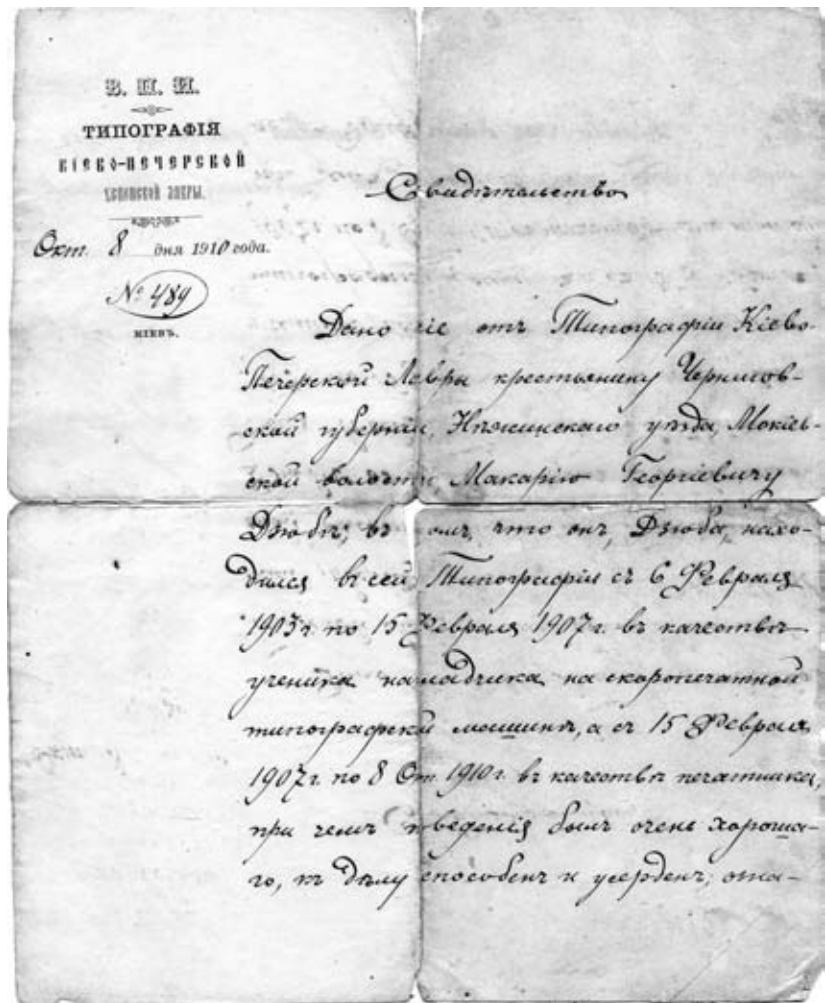 В. П. И.
ТИПОГРАФІЯ
КІЕВО-ПЕЧЕРСКОЙ
УСПЕНСКОЙ ЛАВРЫ.
Окт. 8 дня 1910 года.
№ 489
КІЕВЪ.
Свидѣтельство
Дано сіе отъ Типографіи Кіево-
Печерской Лавры крестьянину Чернигов-
ской губерніи, Нѣжинскаго уѣзда, Мокіев-
ской волости Макарію Георгіевичу
Дзюбѣ, въ томъ, что онъ, Дзюба, нахо-
дился въ сей Типографіи съ 6 Февраля
1903 г. по 15 Февраля 1907 г. въ качествѣ
ученика накладчика на скоропечатной
типографской машинѣ, а съ 15 Февраля
1907 г. по 8 Окт. 1910 г. въ качествѣ печатника,
при чемъ поведенія былъ очень хороша-
го, къ дѣлу способенъ и усерденъ; ока-